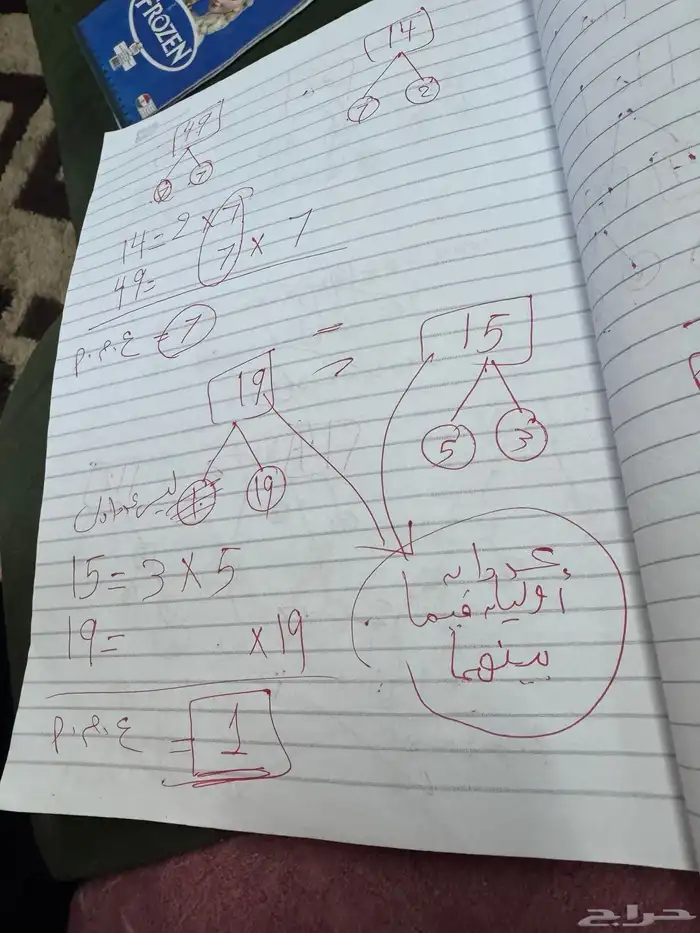 FROZEN
14
7 2
49
7 7
14= 2 × 7
49= 7 × 7
ع.م.م = 7
19
15
5 3
ليس عدد أولي 1 19
15= 3 × 5
19= × 19
عددان
أوليان فيما
بينهما
ع.م.م = 1
حراج